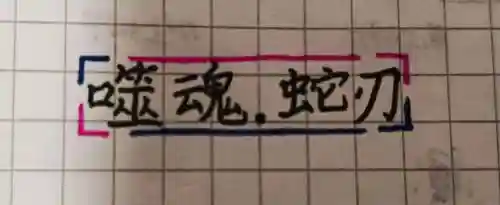 噬魂.蛇刃